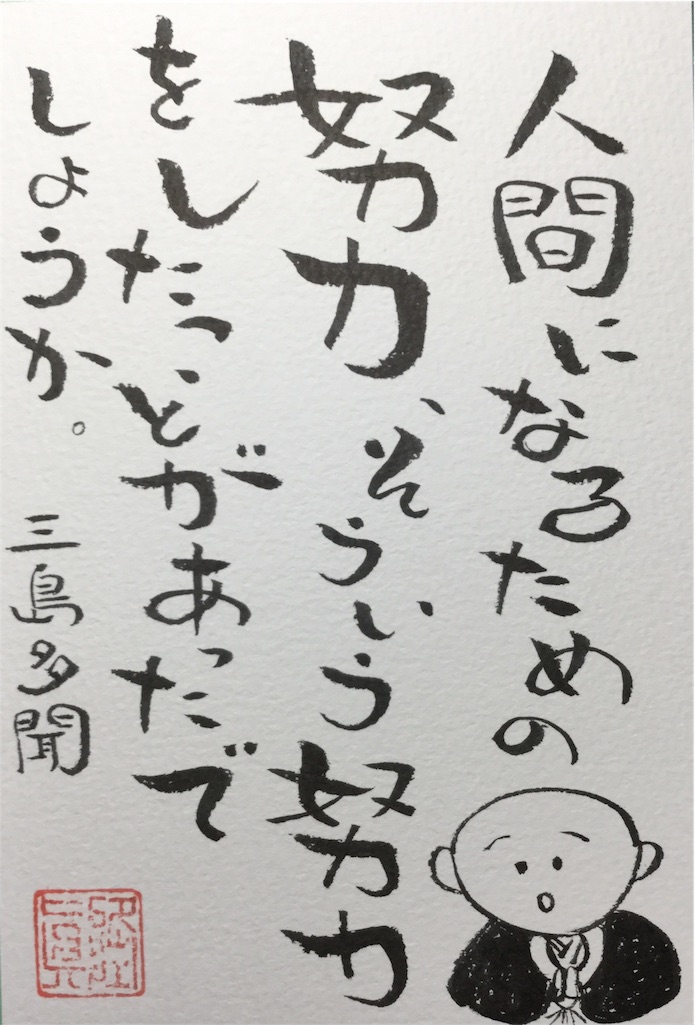 人間になるための
努力、そういう努力
をしたことがあったで
しょうか。
三島多聞